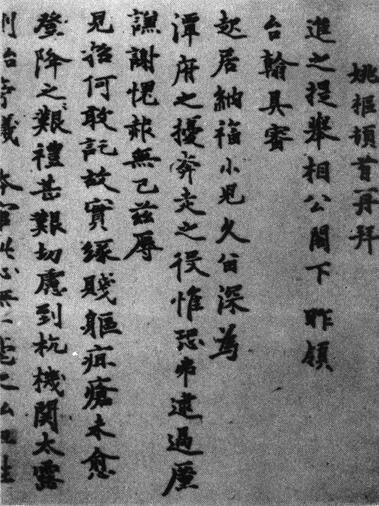 姚樞頓首再拜
進之提舉相公閣下昨領
台翰具審
起居納福小児久留深為
潭府之擾奔走之役惟恐弗逮過蒙
謙謝愧赧無已茲辱
見招何敢託故實緣賤軀疽瘡未愈
登降之艱禮甚艱切慮到杭機關太露